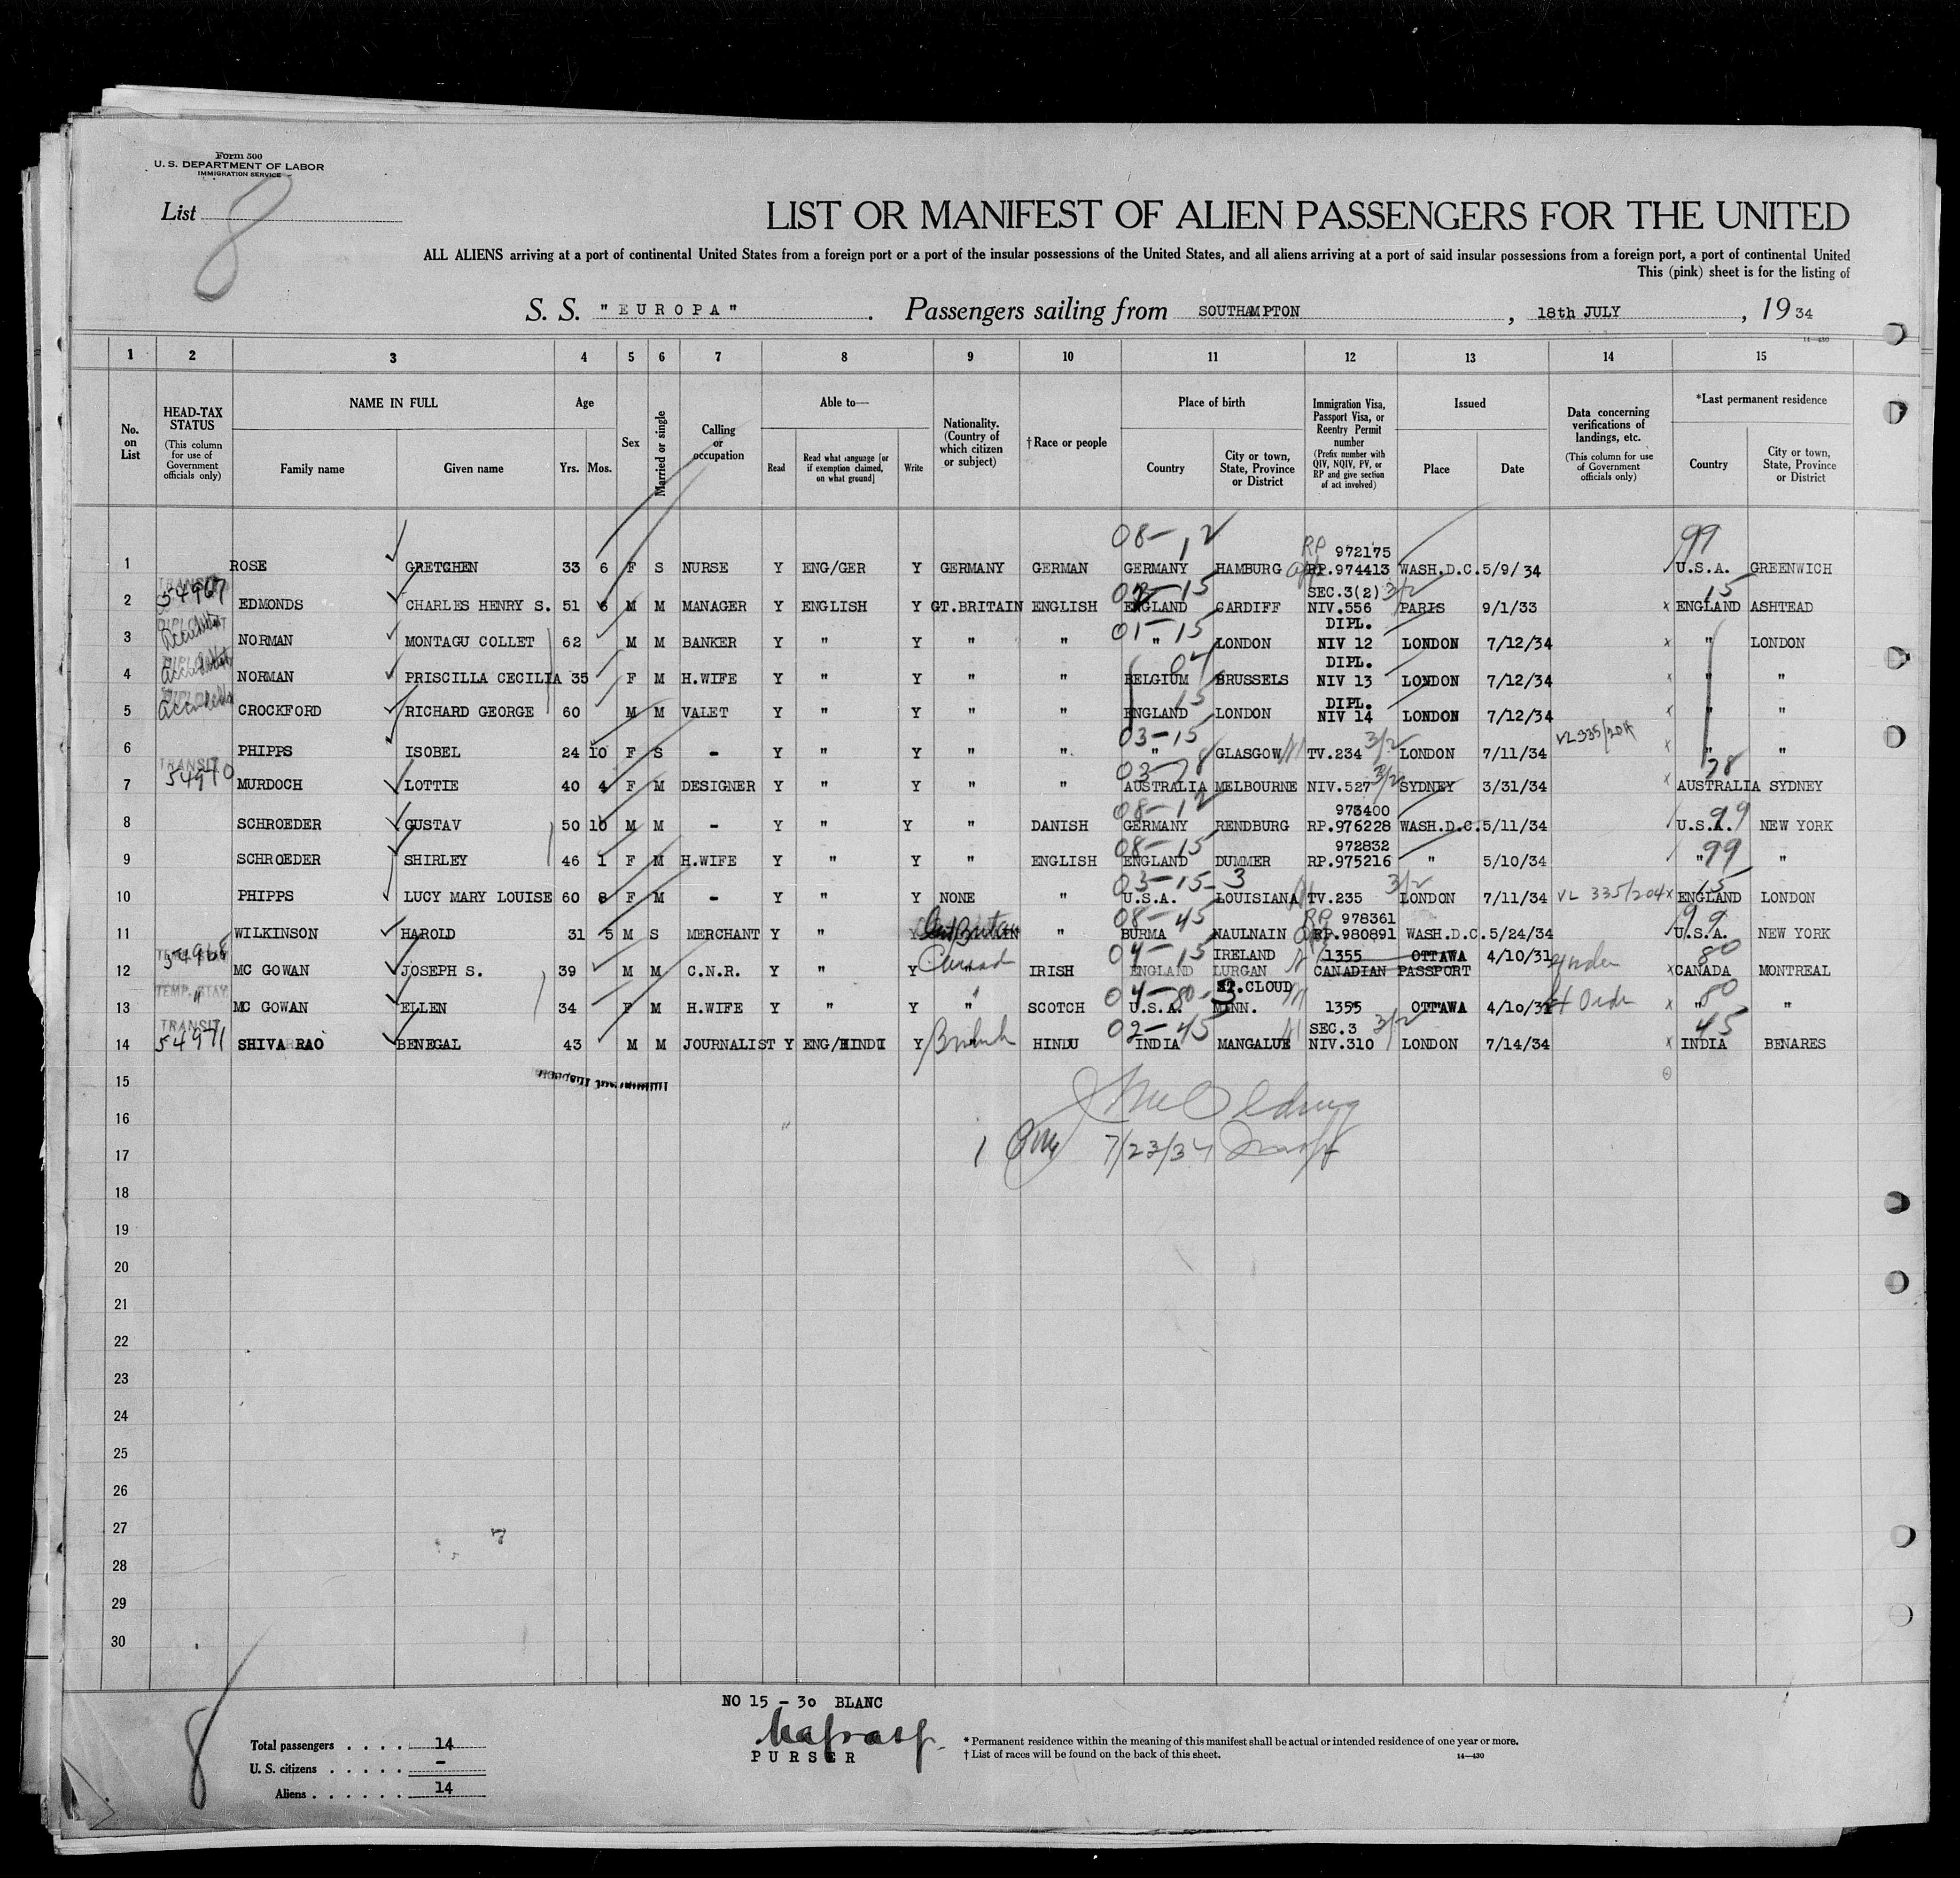 Form 500
U. S. DEPARTMENT OF LABOR
IMMIGRATION SERVICE
List 8
LIST OR MANIFEST OF ALIEN PASSENGERS FOR THE UNITED
ALL ALIENS arriving at a port of continental United States from a foreign port or a port of the insular possessions of the United States, and all aliens arriving at a port of said insular possessions from a foreign port, a port of continental United
This (pink) sheet is for the listing of
S. S. "EUROPA" . Passengers sailing from SOUTHAMPTON , 18th JULY , 19 34
14—430
1 2 3 4 5 6 7 8 9 10 11 12 13 14 15
No. on List
HEAD-TAX STATUS (This column for use of Government officials only)
NAME IN FULL
Family name Given name
Age
Yrs. Mos.
Sex
Married or single
Calling or occupation
Able to—
Read Read what language [or if exemption claimed, on what ground] Write
Nationality. (Country of which citizen or subject)
† Race or people
Place of birth
Country City or town, State, Province or District
Immigration Visa, Passport Visa, or Reentry Permit number (Prefix number with QIV, NQIV, PV, or RP and give section of act involved)
Issued
Place Date
Data concerning verifications of landings, etc. (This column for use of Government officials only)
*Last permanent residence
Country City or town, State, Province or District
08-12 RP 972175 99
1 ROSE GRETCHEN 33 6 F S NURSE Y ENG/GER Y GERMANY GERMAN GERMANY HAMBURG RP.974413 WASH.D.C. 5/9/34 U.S.A. GREENWICH
TRANSIT 54967 15 SEC.3(2) 3/2 15
2 EDMONDS CHARLES HENRY S. 51 6 M M MANAGER Y ENGLISH Y GT.BRITAIN ENGLISH ENGLAND CARDIFF NIV.556 PARIS 9/1/33 x ENGLAND ASHTEAD
DIPLOMAT 01-15 DIPL.
3 NORMAN MONTAGU COLLET 62 M M BANKER Y " Y " " " LONDON NIV 12 LONDON 7/12/34 x " LONDON
DIPLOMAT 04 DIPL.
4 NORMAN PRISCILLA CECILIA 35 F M H.WIFE Y " Y " " BELGIUM BRUSSELS NIV 13 LONDON 7/12/34 x " "
DIPLOMAT 15 DIPL.
5 CROCKFORD RICHARD GEORGE 60 M M VALET Y " Y " " ENGLAND LONDON NIV 14 LONDON 7/12/34 x " "
03-15 3/2 VL 335/204
6 PHIPPS ISOBEL 24 10 F S - Y " Y " " " GLASGOW TV.234 LONDON 7/11/34 x " "
TRANSIT 54970 03-78 3/2 78
7 MURDOCH LOTTIE 40 4 F M DESIGNER Y " Y " " AUSTRALIA MELBOURNE NIV.527 SYDNEY 3/31/34 x AUSTRALIA SYDNEY
08-12 973400 99
8 SCHROEDER GUSTAV 50 10 M M - Y " Y " DANISH GERMANY RENDBURG RP.976228 WASH.D.C. 5/11/34 U.S.A. NEW YORK
08-15 972832 99
9 SCHROEDER SHIRLEY 46 1 F M H.WIFE Y " Y " ENGLISH ENGLAND DUMMER RP.975216 " 5/10/34 " "
03-15-3 3/2 15
10 PHIPPS LUCY MARY LOUISE 60 8 F M - Y " Y NONE " U.S.A. LOUISIANA TV.235 LONDON 7/11/34 VL 335/204 x ENGLAND LONDON
08-45 RP 978361 99
11 WILKINSON HAROLD 31 5 M S MERCHANT Y " Y Great Britain " BURMA NAULNAIN RP.980891 WASH.D.C. 5/24/34 U.S.A. NEW YORK
54968 04-15 IRELAND 1355 OTTAWA 4/10/31 80
12 MC GOWAN JOSEPH S. 39 M M C.N.R. Y " Y Canad IRISH ENGLAND LURGAN CANADIAN PASSPORT x CANADA MONTREAL
TEMP. STAY " 04-80-3 ST.CLOUD 80
13 MC GOWAN ELLEN 34 F M H.WIFE Y " Y " SCOTCH U.S.A. MINN. 1355 OTTAWA 4/10/31 x " "
TRANSIT 54971 02-45 SEC.3 3/2 45
14 SHIVA RAO BENEGAL 43 M M JOURNALIST Y ENG/HINDI Y British HINDU INDIA MANGALUR NIV.310 LONDON 7/14/34 x INDIA BENARES
15
16
17 7/23/34
18
19
20
21
22
23
24
25
26
27
28
29
30
NO 15 - 30 BLANC
PURSER
8
Total passengers . . . . 14
U. S. citizens . . . . . -
Aliens . . . . . . 14
* Permanent residence within the meaning of this manifest shall be actual or intended residence of one year or more.
† List of races will be found on the back of this sheet.
14—430